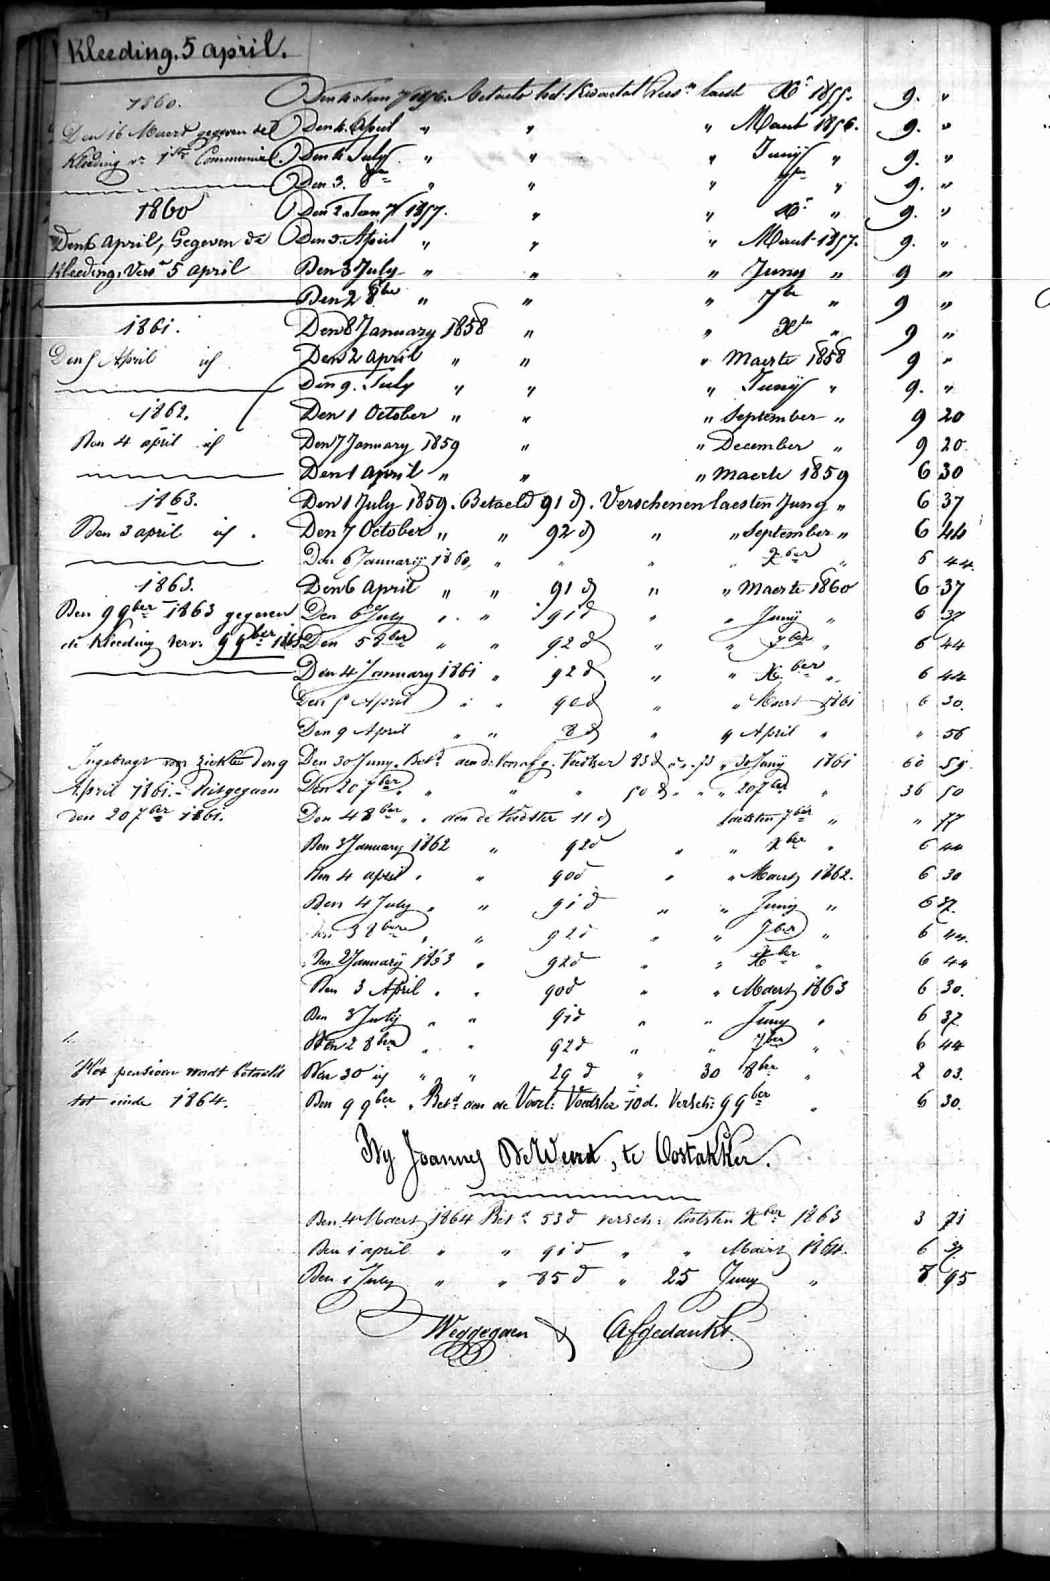 Kleeding. 5 april.
1860.
Den 16 Maert gegeven de
Kleeding v: 1ste Communie.
1860
Den 6 April, Gegeven de
Kleeding, Vers. 5 april
1861.
Den 5 April id
1862.
Den 4 april id
1863.
Den 3 april id.
1863.
Den 9 9ber 1863 gegeven
de Kleeding verv: 9 9ber 1863
April 1861. - Uitgegaen
den 20 7ber 1861.
Het pensioen wordt betaeld
tot einde 1864.
Betaelt het Kwartael laest Xr 1855. 9. "
Den 4. April " " " Maert 1856. 9. "
Den 4 July " " " Junij " 9. "
Den 3. 8bre " " " 7bre " 9. "
Den 2 Jan 1857. " " Xr " 9. "
Den 3. April " " " Maert 1857. 9. "
Den 3 July " " " Juny " 9 "
Den 2 8ber " " " 7br " 9 "
Den 8 January 1858 " " Xbr " 9 "
Den 2 april " " " Maerte 1858 9 "
Den 9. July " " " Junij " 9. "
Den 1 October " " " September " 9 20
Den 7 January 1859 " " December " 9 20
Den 1 april " " " Maerte 1859 6 30
Den 1 July 1859. Betaeld 91 d. Verschenen laesten Juny " 6 37
Den 7 October " " 92 d " " September " 6 44
Den 6 Januarij 1860, " " " " Xber " 6 44
Den 6 April " " 91 d " " Maerte 1860 6 37
Den 6 July " " 91 d " " Junij " 6 37
Den 5 8ber " " 92 d " " 7ber " 6 44
Den 4 January 1861 " 92 d " " Xber " 6 44
Den 5 April " " 90 d " " Maert 1861 6 30.
Den 9 April " " 8 d " 9 April " " 56
Den 30 Juny. Bet. aen de 30 Junij 1861 60 59
Den 20 7ber " " " 50 d " " " 20 7ber " 36 50
Den 4 8ber " " aen de Voedster 11 d laetsten 7ber " " 77
Den 3 January 1862 " 92 d " " Xber " 6 44
Den 4 april " " 90 d " Maert 1862. 6 30
Den 4 July " " 91 d " " Junij " 6 37.
Den 3 8bre " " 92 d " " 7ber " 6 44.
Den 2 Januarij 1863 " 92 d " " Xber " 6 44
Den 3 April " " 90 d " " Maert 1863 6 30.
Den 3 July " " 91 d " " Juny " 6 37
Den 2 8ber " " 92 d " " 7ber " 6 44
Den 30 id " " 29 d " 30 8ber " 2 03.
Den 9 9ber " Bet. aen de Voorl: Voedster 10 d. Versch: 9 9ber " 6 30.
By Joannes De Weird, te Oostakker.
Den 4 Maert 1864 Bet. 53 d versch: laetsten Xber 1863 3 71
Den 1 april " " 91 d " " Maert 1864. 6 37
Den 1 July " " 85 d " 25 Juny " 8 95
Weggegaen & Afgedankt.